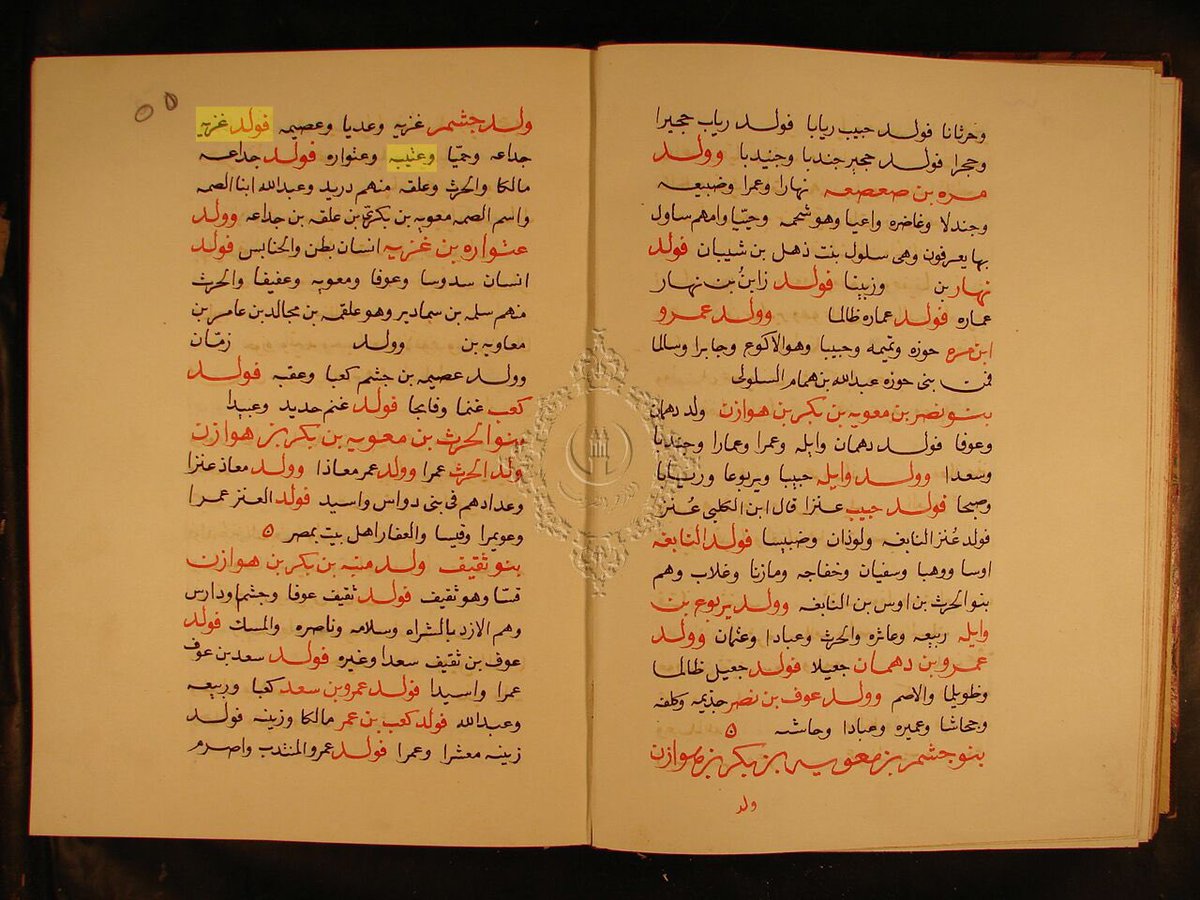 وحرثانا فولد حبيب ريابا فولد رياب حجيرا
وحجرا فولد حجير جندبا وجنيدبا وولد
مره بن صعصعه نهارا وعمرا وضبيعه
وجندلا وغاضره واعيا وهو شحمه وحييا وامهم سلول
بها يعرفون وهى سلول بنت ذهل بن شيبان فولد
نهار بن وزبينا فولد زابن بن نهار
عماره فولد عماره ظالما وولد عمرو
ابن مره حوزه وتميمه وحبيبا وهو الاكوع وجابرا وسالما
فمن بنى حوزه عبدالله بن همام السلولى
بنو نصر بن معويه بن بكر بن هوازن ولد دهمان
وعوفا فولد دهمان وايله وعمرا وعمارا وجندبا
وسعدا وولد وايله حبيبا ويربوعا وريابا
وصبحا فولد حبيب عنزا قال ابن الكلبى عُنز
فولد عُنز النابغه ولوذان وضبيسا فولد النابغه
اوسا ووهبا وسفيان وخفاجه ومازنا وغلاب وهم
بنو الحرث بن اوس بن النابغه وولد يربوع بن
وايله ربيعه وعائره والحرث وعبادا وعثمان وولد
عمرو بن دهمان جعيلا فولد جعيل ظالما
وظويلما والاصم وولد عوف بن نصر جذيمه وكلفه
وجحاشا وعميره وعبادا وحاشه ۵
بنو جشم بن معويه بن بكر بن هوازن
ولد
۵۵
ولد جشم غزيه وعديا وعصيمه فولد غزيه
جداعه وحميّا وعتيبه وعتواره فولد جداعه
مالكا والحرث وعلقه منهم دريد وعبدالله ابنا الصمه
واسم الصمه معويه بن بكر بن علقه بن جداعه وولد
عتواره بن غزيه انسان بطن والحنابس فولد
انسان سدوسا وعوفا ومعويه وعفيفا والحرث
منهم سلمه بن سمادير وهو علقمه بن مجالد بن عامر بن
معاويه بن وولد زمّان
وولد عصيمه بن جشم كعبا وعقبه فولد
كعب غنما وفايجا فولد غنم حديد وعبيدا
بنو الحرث بن معويه بن بكر بن هوازن
ولد الحرث عمرا وولد عمر معاذا وولد معاذ عنزا
وعدادهم فى بنى دواس واسيد فولد العنز عمرا
وعويمرا وقيسا والعفار اهل بيت بمصر ۵
بنو ثقيف ولد منبه بن بكر بن هوازن
قسيا وهو ثقيف فولد ثقيف عوفا وجشم ودارس
وهم الازد بالشراه وسلامه وناصره والمسك فولد
عوف بن ثقيف سعدا وغيره فولد سعد بن عوف
عمرا واسيدا فولد عمرو بن سعد كعبا وربيعه
وعبدالله فولد كعب بن عمر مالكا وزينه فولد
زينه معشرا وعمرا فولد عمرو المنتدب واصرم